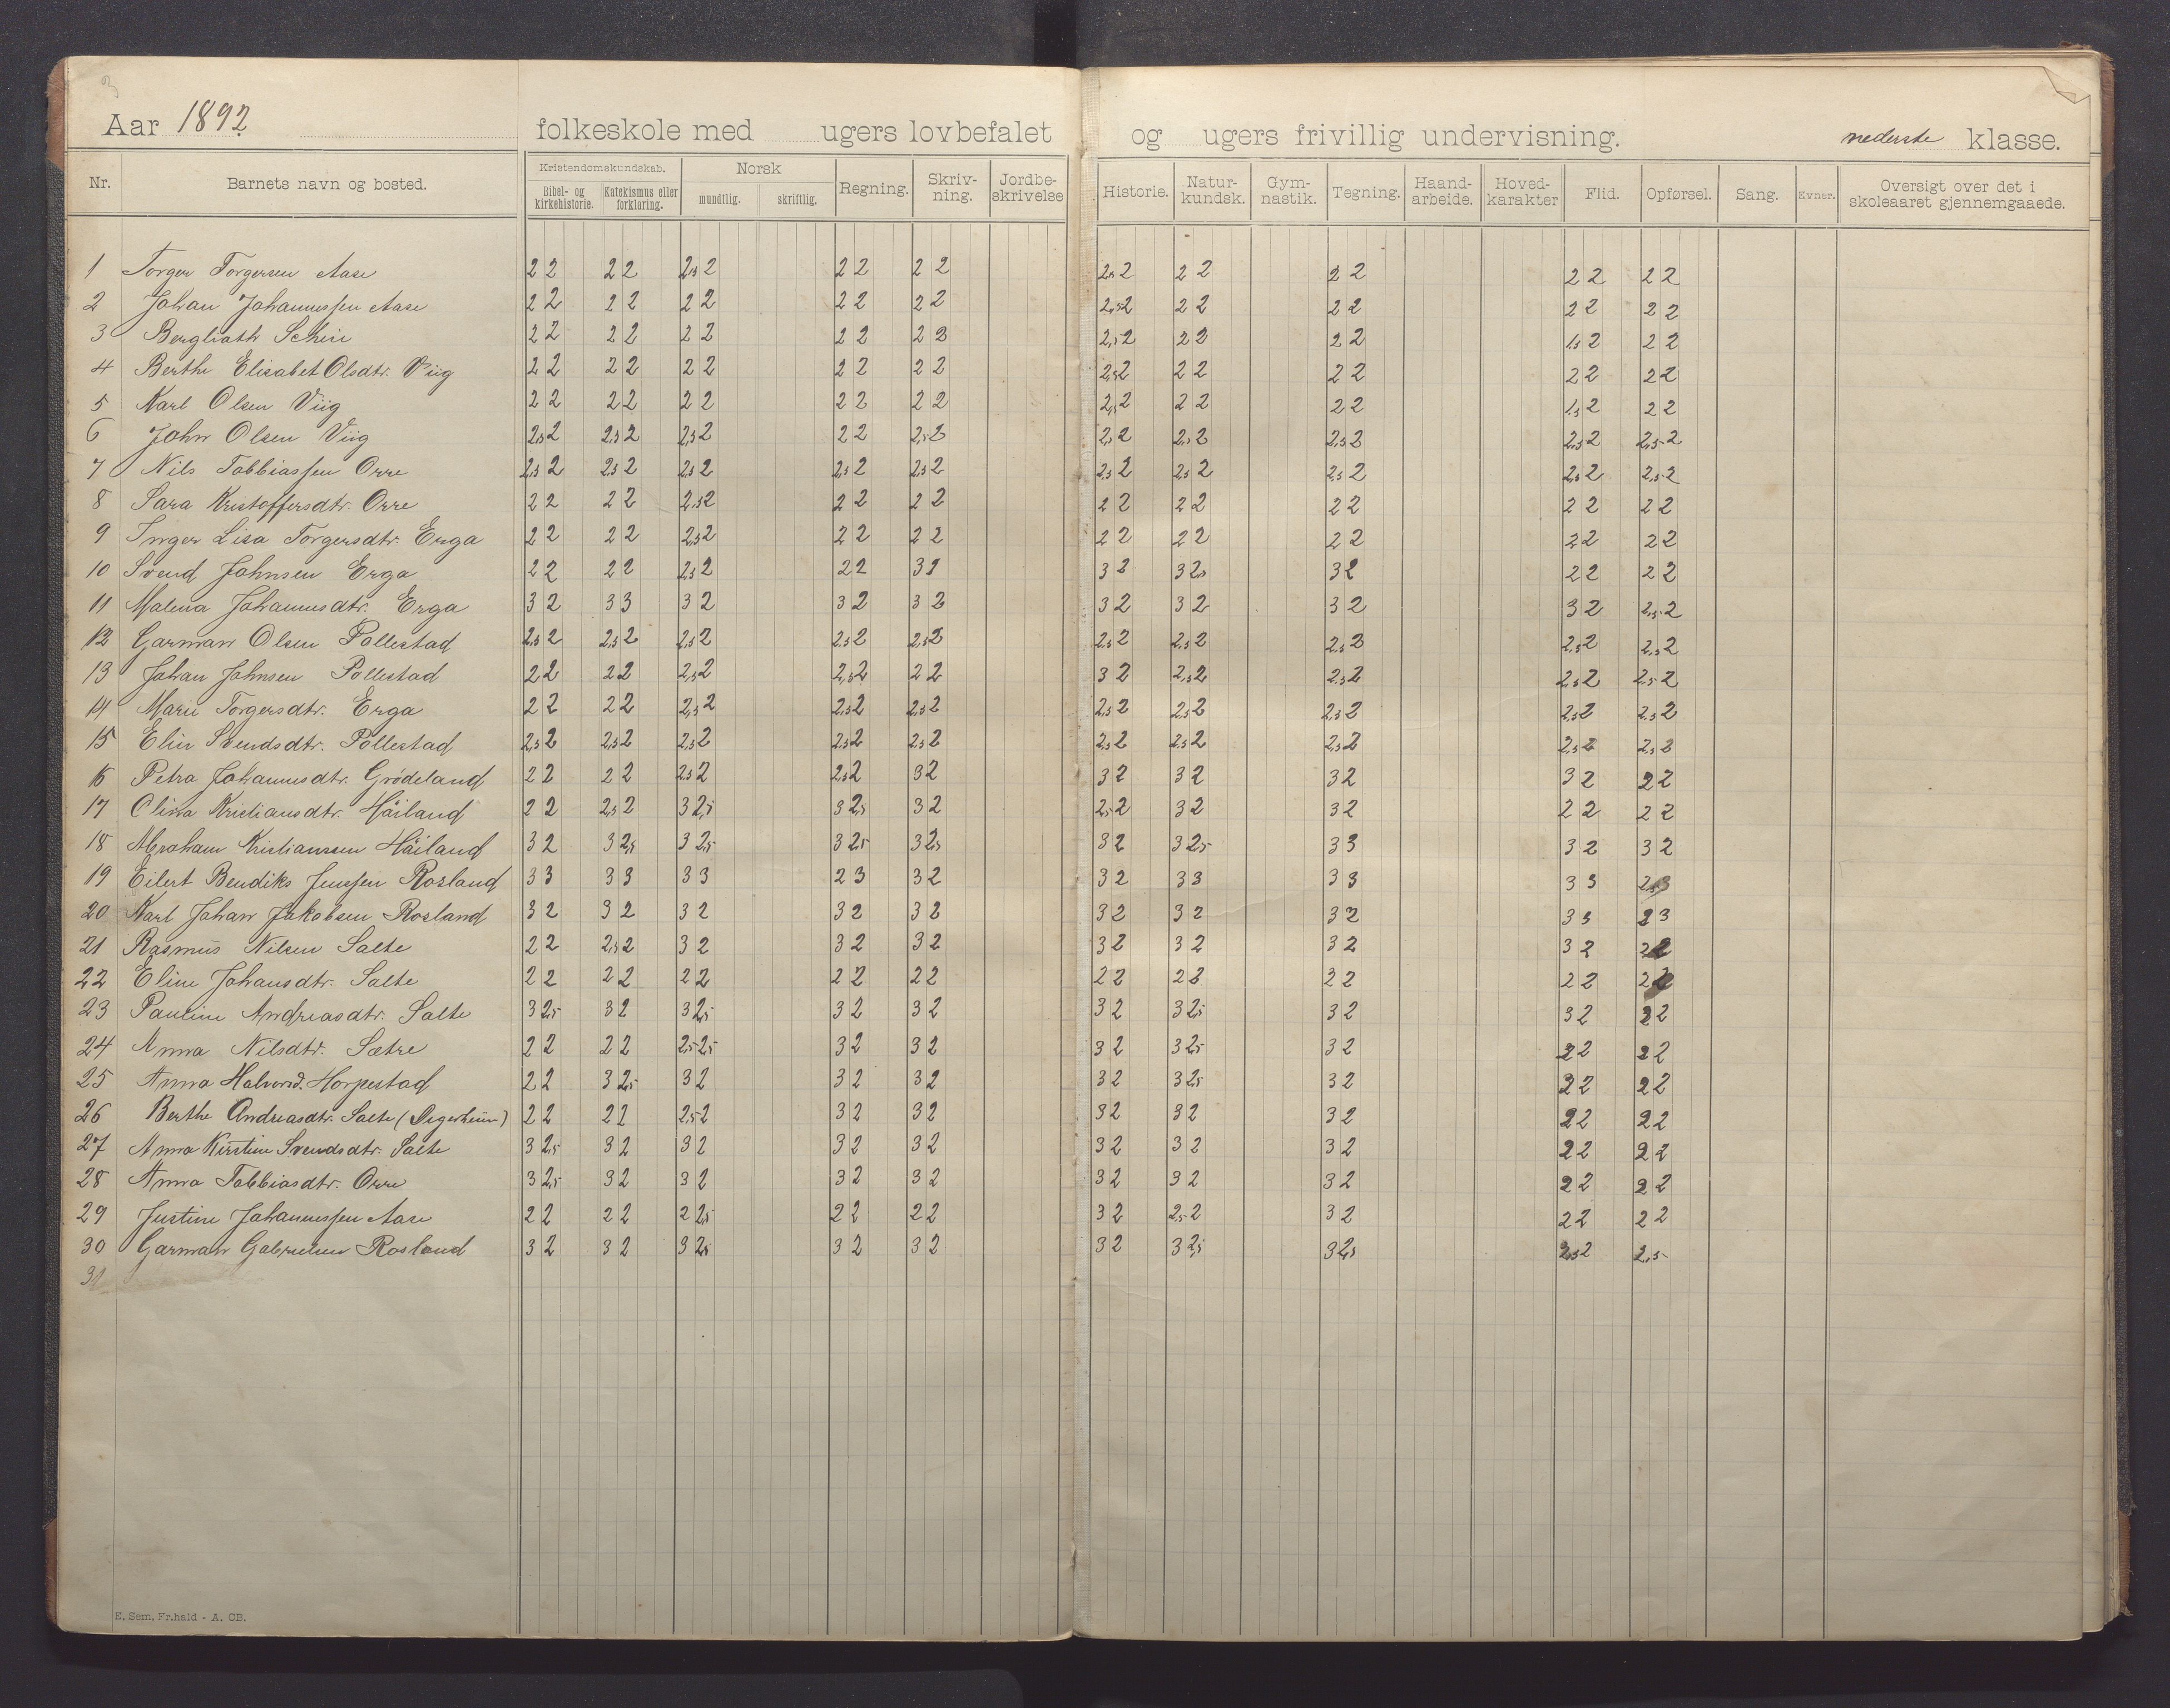 3
Aar 1892 folkeskole med ugers lovbefalet og ugers frivillig undervisning. nederste klasse.
Nr. Barnets navn og bosted. Kristendomskundskab. Bibel- og kirkehistorie. Katekismus eller forklaring. Norsk mundtlig. skriftlig. Regning. Skriv-ning. Jordbe-skrivelse Historie. Natur-kundsk. Gym-nastik. Tegning. Haand-arbeide. Hoved-karakter Flid. Opførsel. Sang. Evner. Oversigt over det i skoleaaret gjennemgaaede.
1 Torger Torgersen Aase 2 2 2 2 2,5 2 2 2 2 2 2,5 2 2 2 2 2 2 2 2 2
2 Johan Johannessen Aase 2 2 2 2 2 2 2 2 2 2 2,5 2 2 2 2 2 2 2 2 2
3 Bergliath Schei 2 2 2 2 2 2 2 2 2 3 2,5 2 2 2 2 2 1,5 2 2 2
4 Berthe Elisabet Olsdtr. Viig 2 2 2 2 2 2 2 2 2 2 2,5 2 2 2 2 2 2 2 2 2
5 Karl Olsen Viig 2 2 2 2 2 2 2 2 2 2 2,5 2 2 2 2 2 1,5 2 2 2
6 John Olsen Viig 2,5 2 2,5 2 2,5 2 2 2 2,5 2 2,5 2 2,5 2 2,5 2 2,5 2 2,5 2
7 Nils Tobbiassen Orre 2,5 2 2,5 2 2,5 2 2,5 2 2,5 2 2,5 2 2,5 2 2,5 2 2,5 2 2,5 2
8 Sara Kristoffersdtr. Orre 2 2 2 2 2,5 2 2 2 2 2 2 2 2 2 2 2 2 2 2 2
9 Inger Lisa Torgersdtr. Erga 2 2 2 2 2,5 2 2 2 2 2 2 2 2 2 2 2 2 2 2 2
10 Svend Johnsen Erga 2 2 2 2 2,5 2 2 2 3 2 3 2 3 2,5 3 2 2 2 2 2
11 Malena Johannesdtr. Erga 3 2 3 3 3 2 3 2 3 2 3 2 3 2 3 2 3 2 2,5 2
12 Garman Olsen Pollestad 2,5 2 2,5 2 2,5 2 2,5 2 2,5 2 2,5 2 2,5 2 2,5 2 2,5 2 2,5 2
13 Johan Johnsen Pollestad 2 2 2 2 2,5 2 2,5 2 2 2 3 2 2,5 2 2,5 2 2,5 2 2,5 2
14 Marie Torgersdtr. Erga 2 2 2 2 2,5 2 2,5 2 2,5 2 2,5 2 2,5 2 2,5 2 2,5 2 2,5 2
15 Elin Svendsdtr. Pollestad 2,5 2 2,5 2 2,5 2 2,5 2 2,5 2 2,5 2 2,5 2 2,5 2 2,5 2 2,5 2
16 Petra Johannesdtr. Grødeland 2 2 2 2 2,5 2 2,5 2 3 2 3 2 3 2 3 2 3 2 2 2
17 Olina Kristiansdtr. Håiland 2 2 2,5 2 3 2,5 3 2,5 3 2 2,5 2 3 2 3 2 2 2 2 2
18 Abraham Kristianssen Håiland 3 2 3 2,5 3 2,5 3 2,5 3 2,5 3 2 3 2,5 3 3 3 2 3 2
19 Eilert Bendiks Jenssen Rosland 3 3 3 3 3 3 2 3 3 2 3 2 3 3 3 3 3 3 2,5 3
20 Karl Johan Jakobsen Rosland 3 2 3 2 3 2 3 2 3 2 3 2 3 2 3 2 3 3 2 3
21 Rasmus Nilsen Salte 2 2 2,5 2 3 2 3 2 3 2 3 2 3 2 3 2 3 2 2 2
22 Eline Johansdtr. Salte 2 2 2 2 2 2 2 2 2 2 2 2 2 2 2 2 2 2 2 2
23 Pauline Andreasdtr. Salte 3 2,5 3 2 3 2,5 3 2 3 2 3 2 3 2,5 3 2 3 2 2 2
24 Anna Nilsdtr. Sætre 2 2 2 2 2,5 2,5 3 2 3 2 3 2 3 2,5 3 2 2 2 2 2
25 Anna Halvorsd. Horpestad 2 2 3 2,5 3 2 3 2 3 2 3 2 3 2,5 3 2 2 2 2 2
26 Berthe Andreasdtr. Salte (Degerheim) 2 2 2 2 2,5 2 3 2 3 2 3 2 3 2 3 2 2 2 2 2
27 Anna Kirstine Svendsdtr. Salte 3 2,5 3 2 3 2 3 2 3 2 3 2 3 2 3 2 2 2 2 2
28 Anna Tobbiasdtr. Orre 3 2,5 3 2 3 2 3 2 3 2 3 2 3 2 3 2 2 2 2 2
29 Justine Johannessen Aase 2 2 2 2 2 2,5 2 2 2 2 3 2 2,5 2 3 2 2 2 2 2
30 Garman Gabrielsen Rosland 3 2 3 2 3 2,5 3 2 3 2 3 2 3 2,5 3 2,5 2,5 2 2,5
31
E. Sem, Fr.hald - A. CB.